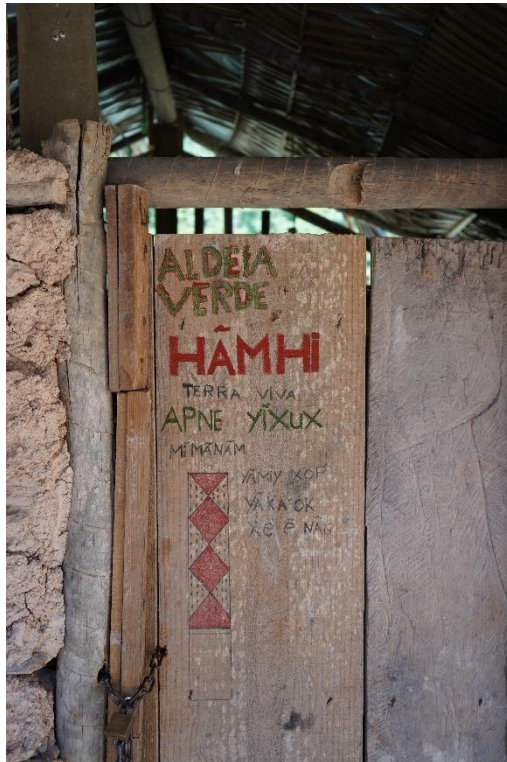 ALDEIA
VERDE
HÃMHI
TERRA VIVA
APNE YĨXUX
MĨMÃNÃM
YÃMIY XOP
YÃKA OK